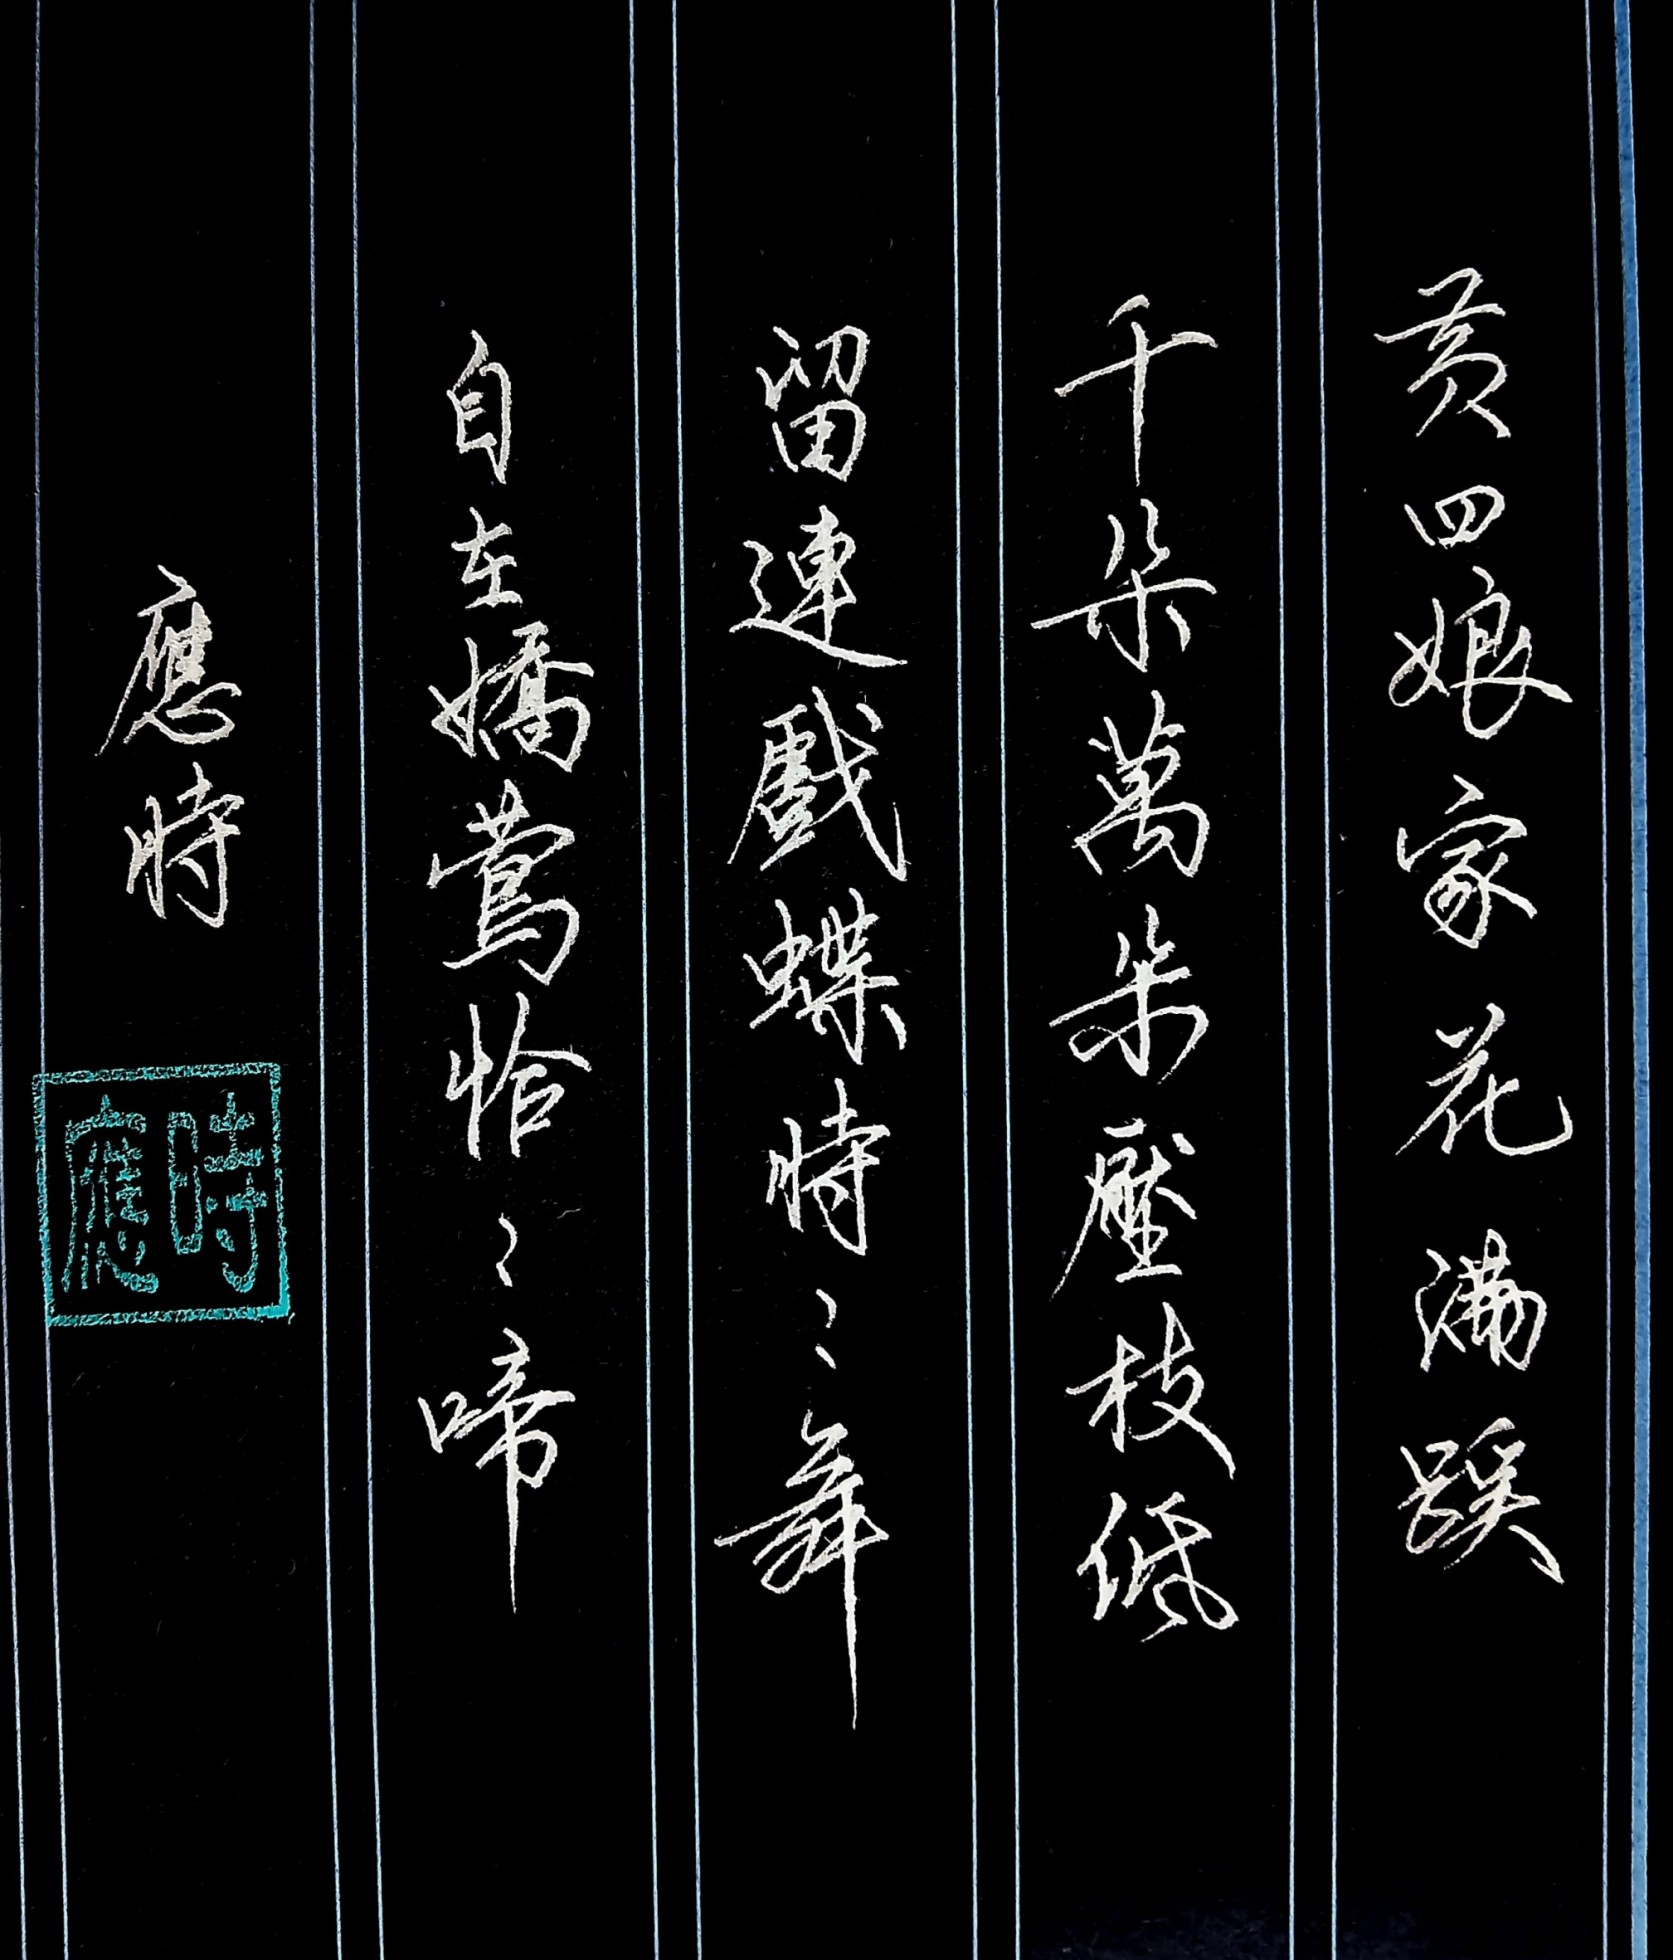 黄四娘家花满蹊
千朵萬朵壓枝低
留連戲蝶時〻舞
自在嬌鶯恰〻啼
應時
時應